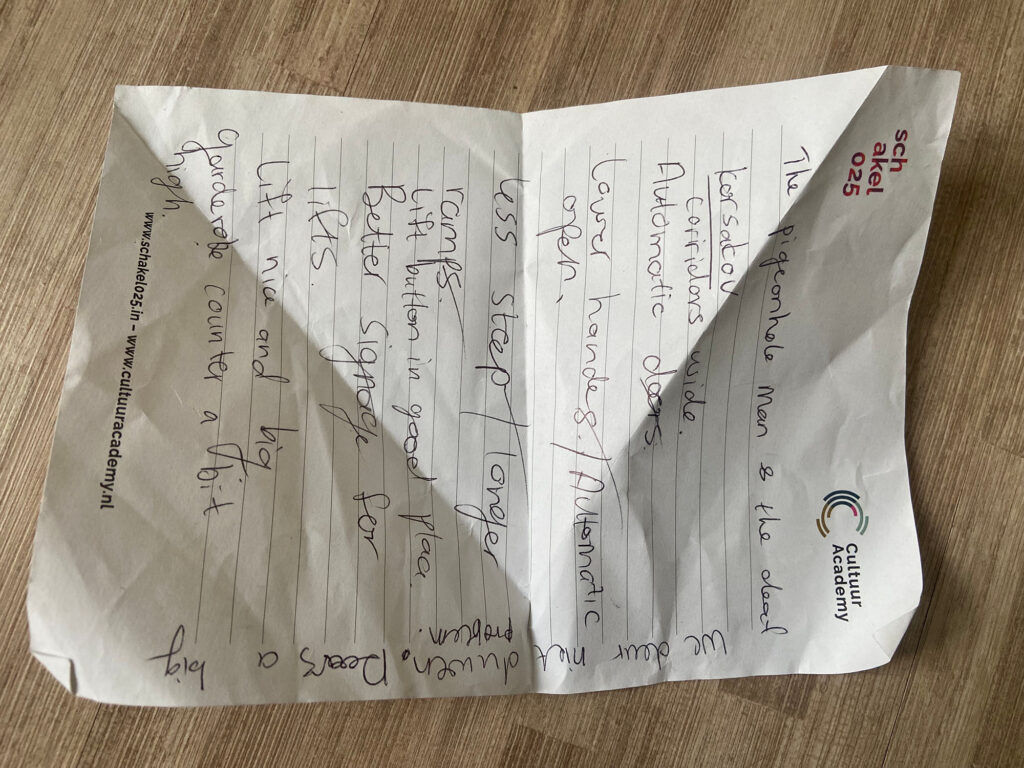 sch
akel
025
Cultuur
Academy
The pigeonhole man & the dead
Korsacov
coriridors wide.
Automatic doors.
Lower handes./Automatic
open.
less step/longer
ramps.
Lift button in good place.
Better signage for
lifts.
Lift nice and big
garderobe counter a bit
high.
deur
niet
duwen.
problem.
Doors
a
big
www.schakel025.in – www.cultuuracademy.nl